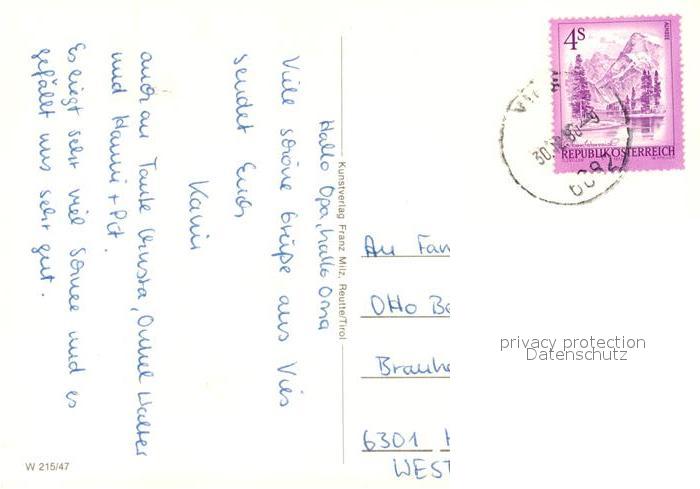 Hallo Opa, hallo Oma
Viele schöne Grüße aus Vils
sendet Euch
Karin
auch an Tante Christa, Onkel Walter
und Hanni + Pit.
Es liegt sehr viel Schnee und es
gefällt uns sehr gut.
W 215/47
Kunstverlag Franz Milz, Reutte/Tirol
4S
ALMSEE
REPUBLIK ÖSTERREICH
30.
80-9
6682
An Fam
Otto Be
Brauh
6301
WEST
privacy protection
Datenschutz